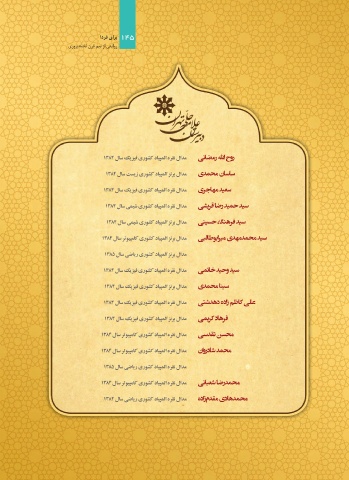 ۱۴۵
برای فردا
روایتی از نیم قرن تخصص‌پروری
دبیرستان علامه حلی تهران
روح الله رمضانی مدال نقره المپیاد کشوری فیزیک سال ۱۳۸۴
ساسان محمدی مدال برنز المپیاد کشوری زیست سال ۱۳۸۴
سعید مهاجری مدال نقره المپیاد کشوری فیزیک سال ۱۳۸۴
سید حمید رضا قریشی مدال نقره المپیاد کشوری شیمی سال ۱۳۸۴
سید فرهنگ حسینی مدال برنز المپیاد کشوری شیمی سال ۱۳۸۴
سید محمدمهدی میرابوطالبی مدال برنز المپیاد کشوری کامپیوتر سال ۱۳۸۴
مدال برنز المپیاد کشوری ریاضی سال ۱۳۸۵
سید وحید خاتمی مدال نقره المپیاد کشوری فیزیک سال ۱۳۸۴
سینا محمدی مدال برنز المپیاد کشوری فیزیک سال ۱۳۸۴
علی کاظم زاده دهدشتی مدال نقره المپیاد کشوری فیزیک سال ۱۳۸۴
فرهاد کریمی مدال نقره المپیاد کشوری فیزیک سال ۱۳۸۴
محسن تقدسی مدال نقره المپیاد کشوری کامپیوتر سال ۱۳۸۴
محمد شادروان مدال نقره المپیاد کشوری کامپیوتر سال ۱۳۸۴
مدال نقره المپیاد کشوری ریاضی سال ۱۳۸۵
محمدرضا شعبانی مدال نقره المپیاد کشوری کامپیوتر سال ۱۳۸۴
محمدهادی مقدم‌زاده مدال نقره المپیاد کشوری ریاضی سال ۱۳۸۴